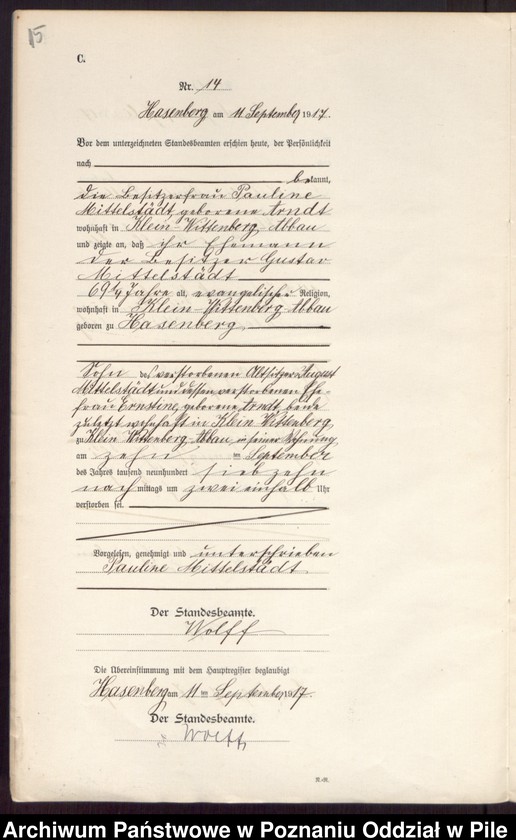 15
C.
Nr. 14
Hasenberg am 11 September 1917.
Vor dem unterzeichneten Standesbeamten erschien heute, der Persönlichkeit
nach
bekannt,
die Besitzerfrau Pauline
Mittelstädt, geborene Arndt
wohnhaft in Klein-Wittenberg-Abbau
und zeigte an, daß ihr Ehemann
der Besitzer Gustav
Mittelstädt
69 1/4 Jahre alt, evangelischer Religion,
wohnhaft in Klein-Wittenberg-Abbau
geboren zu Hasenberg,
Sohn des verstorbenen Altsitzers August
Mittelstädt und dessen verstorbenen Ehe-
frau Ernstine, geborene Arndt, beide
zuletzt wohnhaft in Klein Wittenberg
zu Klein-Wittenberg-Abbau, in seiner Wohnung
am zehn ten September
des Jahres tausend neunhundert siebzehn
nach mittags um zwei einhalb Uhr
verstorben sei.
Vorgelesen, genehmigt und unterschrieben
Pauline Mittelstädt.
Der Standesbeamte.
Wolff
Die Übereinstimmung mit dem Hauptregister beglaubigt
Hasenberg am 11 ten September 1917.
Der Standesbeamte.
Wolff
Archiwum Państwowe w Poznaniu Oddział w Pile